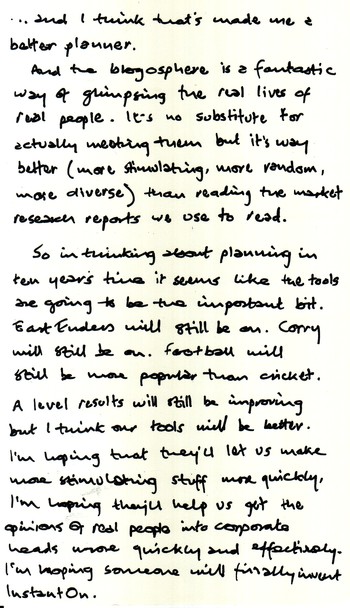 ...and I think that's made me a
better planner.
And the blogosphere is a fantastic
way of glimpsing the real lives of
real people. It's no substitute for
actually meeting them but it's way
better (more stimulating, more random,
more diverse) than reading the market
research reports we use to read.
So in thinking about planning in
ten years time it seems like the tools
are going to be the important bit.
East Enders will still be on. Corry
will still be on. Football will
still be more popular than cricket.
A level results will still be improving
but I think our tools will be better.
I'm hoping that they'll let us make
more stimulating stuff more quickly,
I'm hoping they'll help us get the
opinions of real people into corporate
heads more quickly and effectively.
I'm hoping someone will finally invent
Instant On.